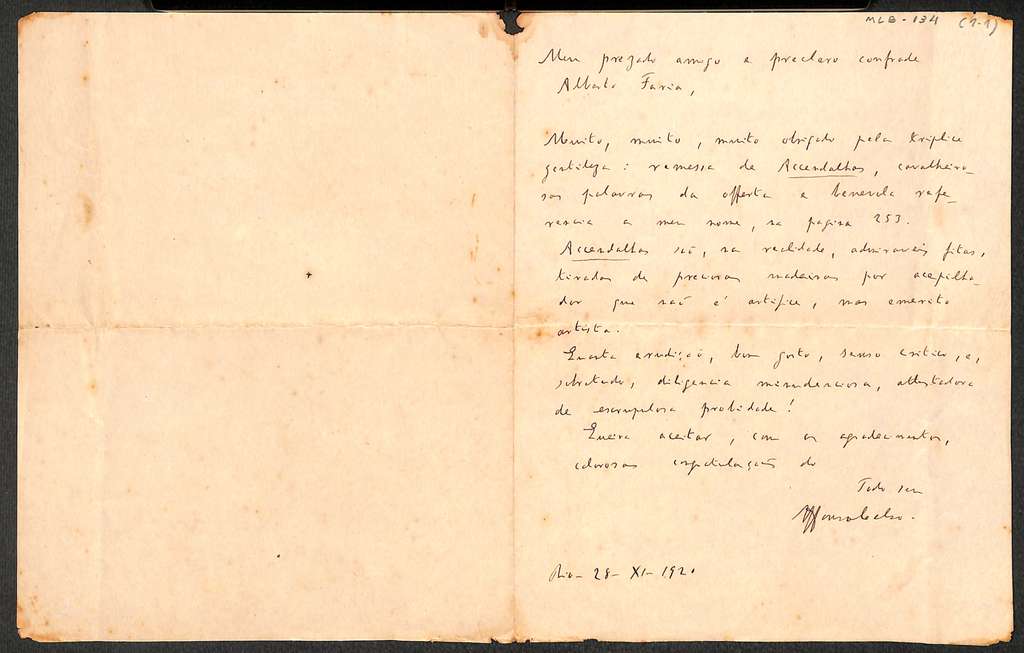 MLB - 134 (1-1)
Meu prezado amigo e preclaro confrade
Alberto Faria,
Muito, muito, muito obrigado pela triplice
gentileza: remessa de Accendalhas, cavalheiro-
sas palavras da offerta e benevola refe-
rencia a meu nome, na pagina 253.
Accendalhas são, na realidade, admiraveis fitas,
tiradas de preciosas madeiras por acepilha-
dor que não é artifice, mas emerito
artista.
Quanta erudição, bom gosto, senso critico, e,
sobretudo, diligencia minudenciosa, attestadora
de escrupulosa probidade!
Queira aceitar, com os agradecimentos,
calorosas congratulações do
Todo seu
Affonso Celso.
Rio - 28 - XI - 192